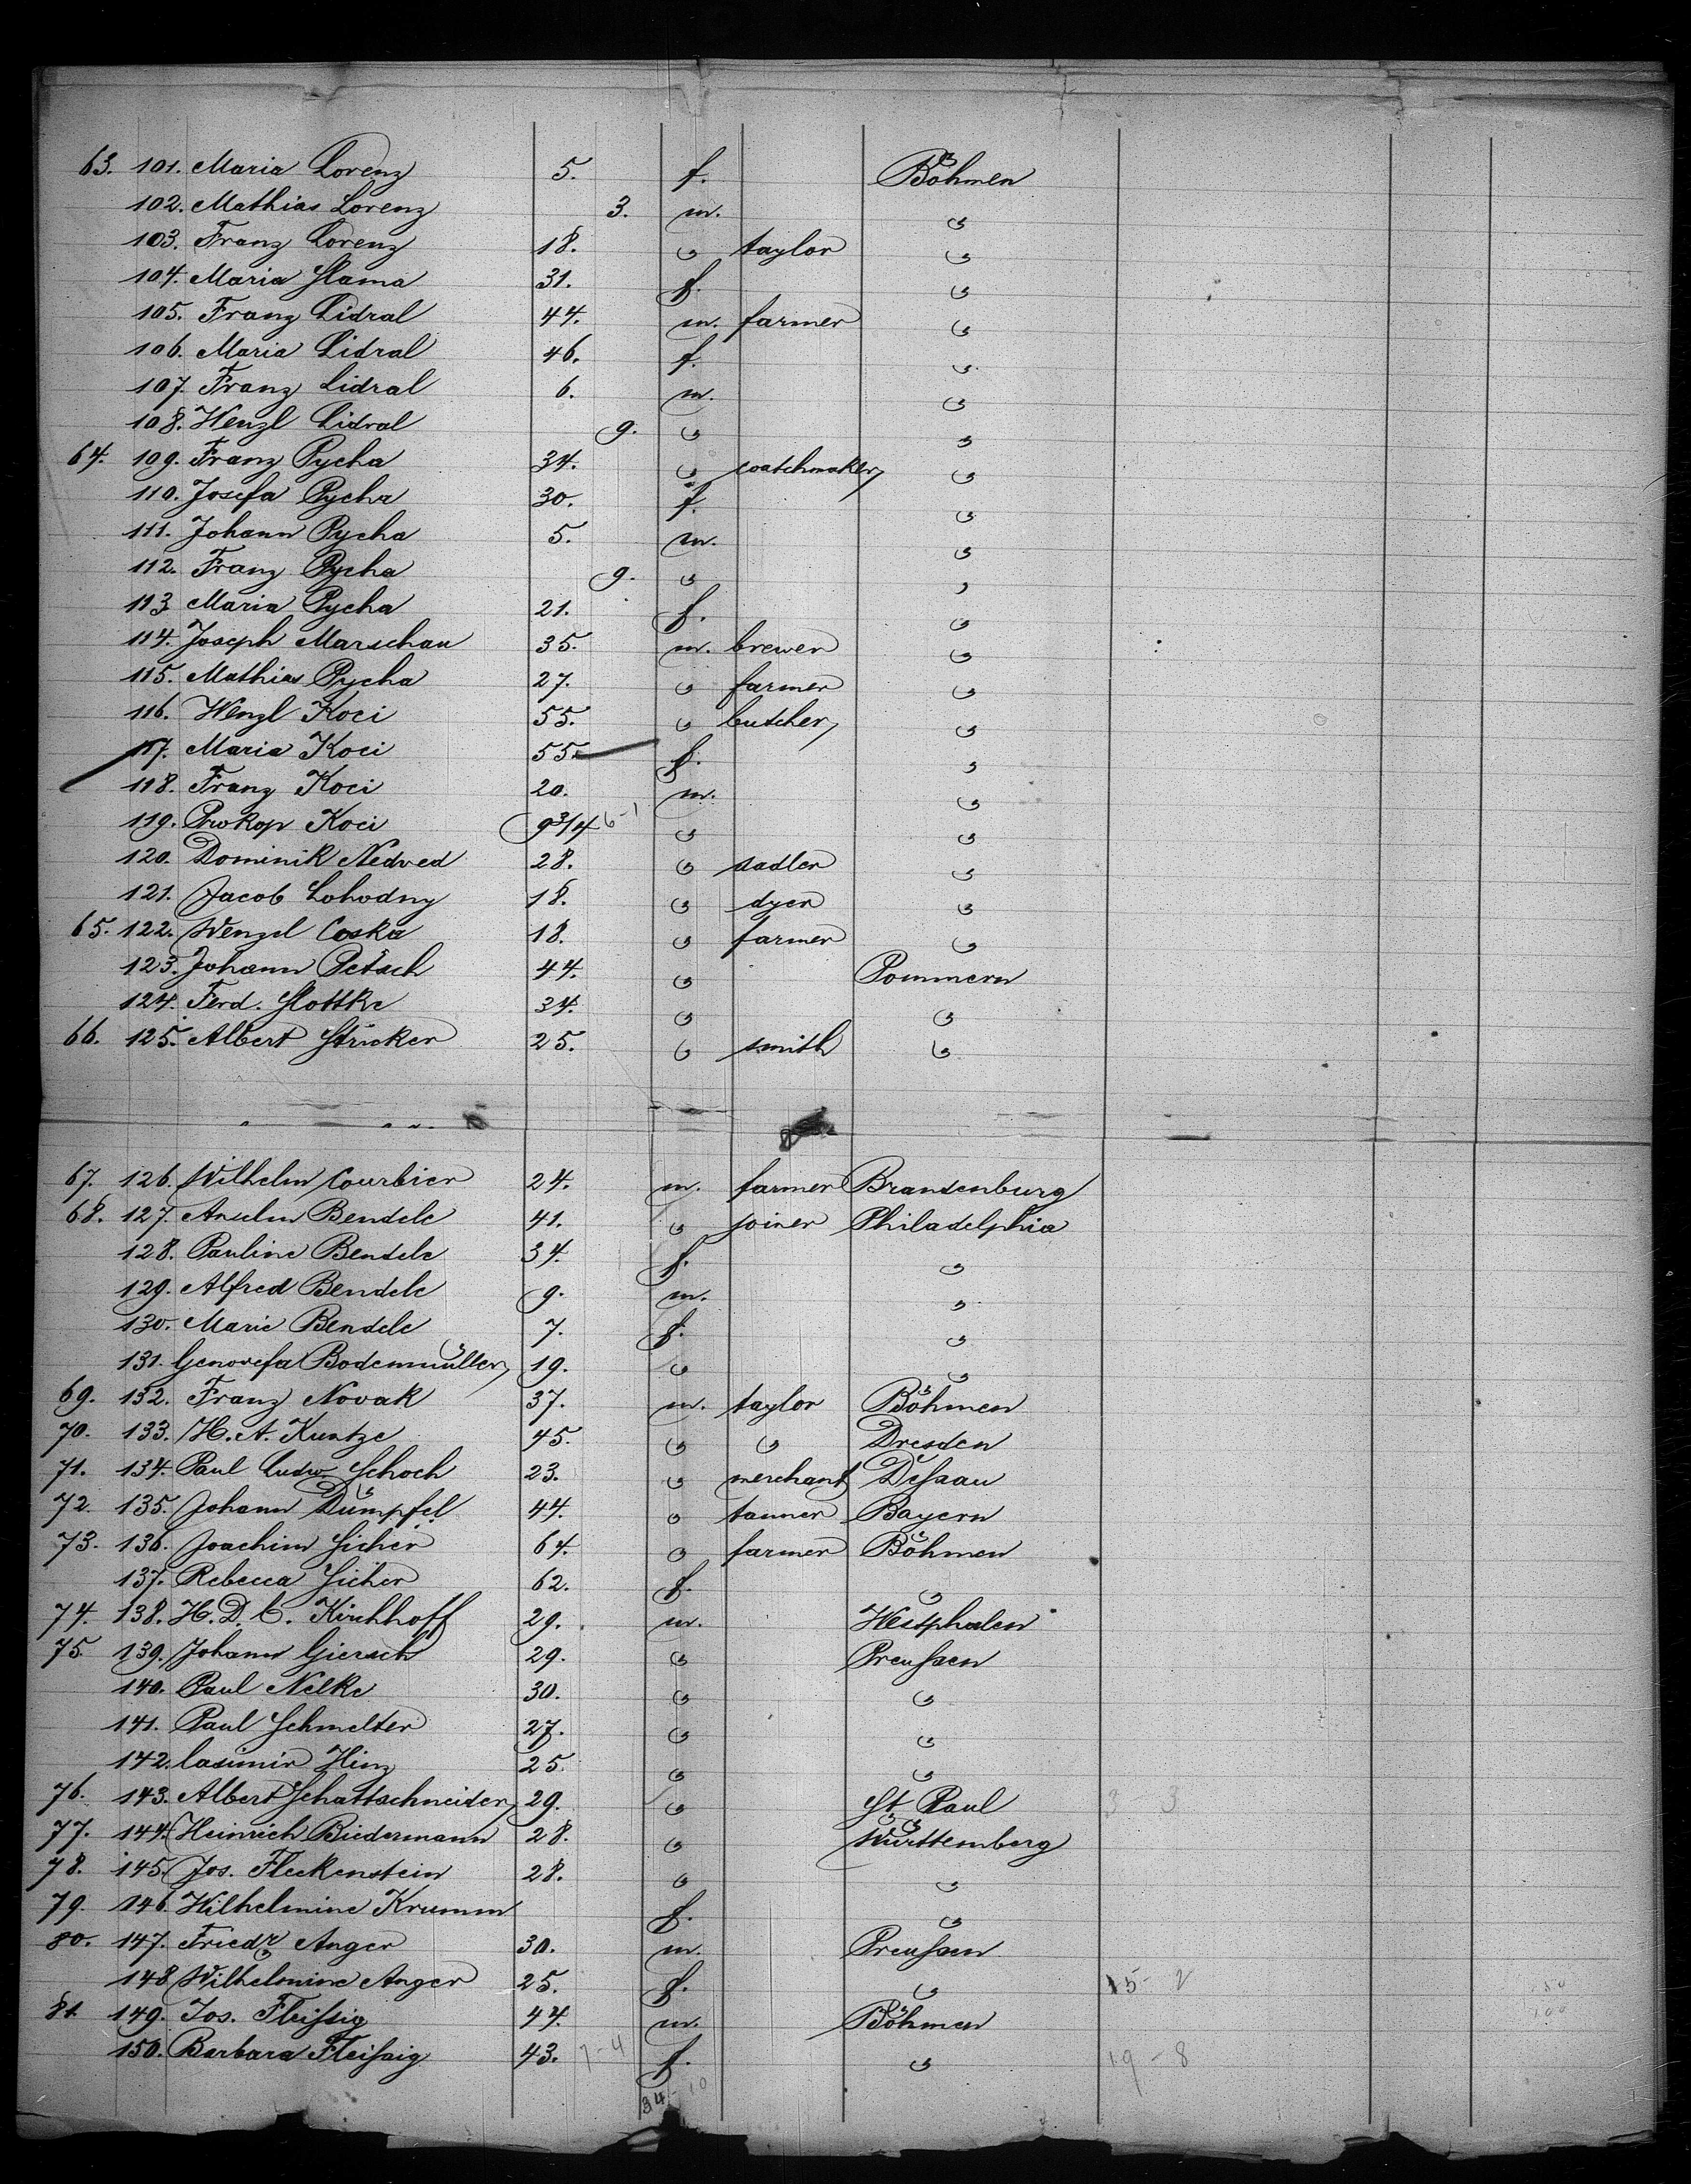 63. 101. Maria Lorenz 5. f. Böhmen
102. Mathias Lorenz 3. m. "
103. Franz Lorenz 18. " taylor "
104. Maria Slama 31. f. "
105. Franz Lidral 44. m. farmer "
106. Maria Lidral 46. f. "
107. Franz Lidral 6. m. "
108. Wenzl Lidral 9. " "
64. 109. Franz Pycha 34. " watchmaker "
110. Josefa Pycha 30. f. "
111. Johann Pycha 5. m. "
112. Franz Pycha 9. " "
113 Maria Pycha 21. f. "
114. Joseph Marschau 35. m. brewer "
115. Mathias Pycha 27. " farmer "
116. Wenzl Koci 55. " butcher "
117. Maria Koci 55. f. "
118. Franz Koci 20. m. "
119. Prokop Koci 9 3/4 6-1 " "
120. Dominik Nedved 28. " sadler "
121. Jacob Lohodny 18. " dyer "
65. 122. Wenzel Coska 18. " farmer "
123. Johann Petsch 44. " Pommern
124. Ferd. Slottke 34. " "
66. 125. Albert Stricker 25. " smith "
67. 126. Wilhelm Courbier 24. m. farmer Brandenburg
68. 127. Anselm Bendele 41. " joiner Philadelphia
128. Pauline Bendele 34. f. "
129. Alfred Bendele 9. m. "
130. Marie Bendele 7. f. "
131. Genovefa Bodenmüller 19. " "
69. 132. Franz Novak 37. m. taylor Böhmen
70. 133. H. A. Kuntze 45. " " Dresden
71. 134. Paul Ludw. Schoch 23. " merchant Deßau
72. 135. Johann Dümpfel 44. " tanner Bayern
73. 136. Joachim Sicher 64. " farmer Böhmen
137. Rebecca Sicher 62. f. "
74. 138. H. D. C. Kirchhoff 29. m. Westphalen
75. 139. Johann Giersch 29. " Preußen
140. Paul Nelke 30. " "
141. Paul Schmelter 27. " "
142. Casimir Hinz 25. " "
76. 143. Albert Schattschneider 29. " St. Paul 3 3
77. 144. Heinrich Biedermann 28. " Württemberg
78. 145. Jos. Fleckenstein 28. " "
79. 146. Wilhelmine Krumm f. "
80. 147. Friedr. Anger 30. m. Preußen
148 Wilhelmine Anger 25. f. " 15-2
81. 149. Jos. Fleißig 44. m. Böhmen
150. Barbara Fleißig 43. 7-4 f. " 19-8
34-10